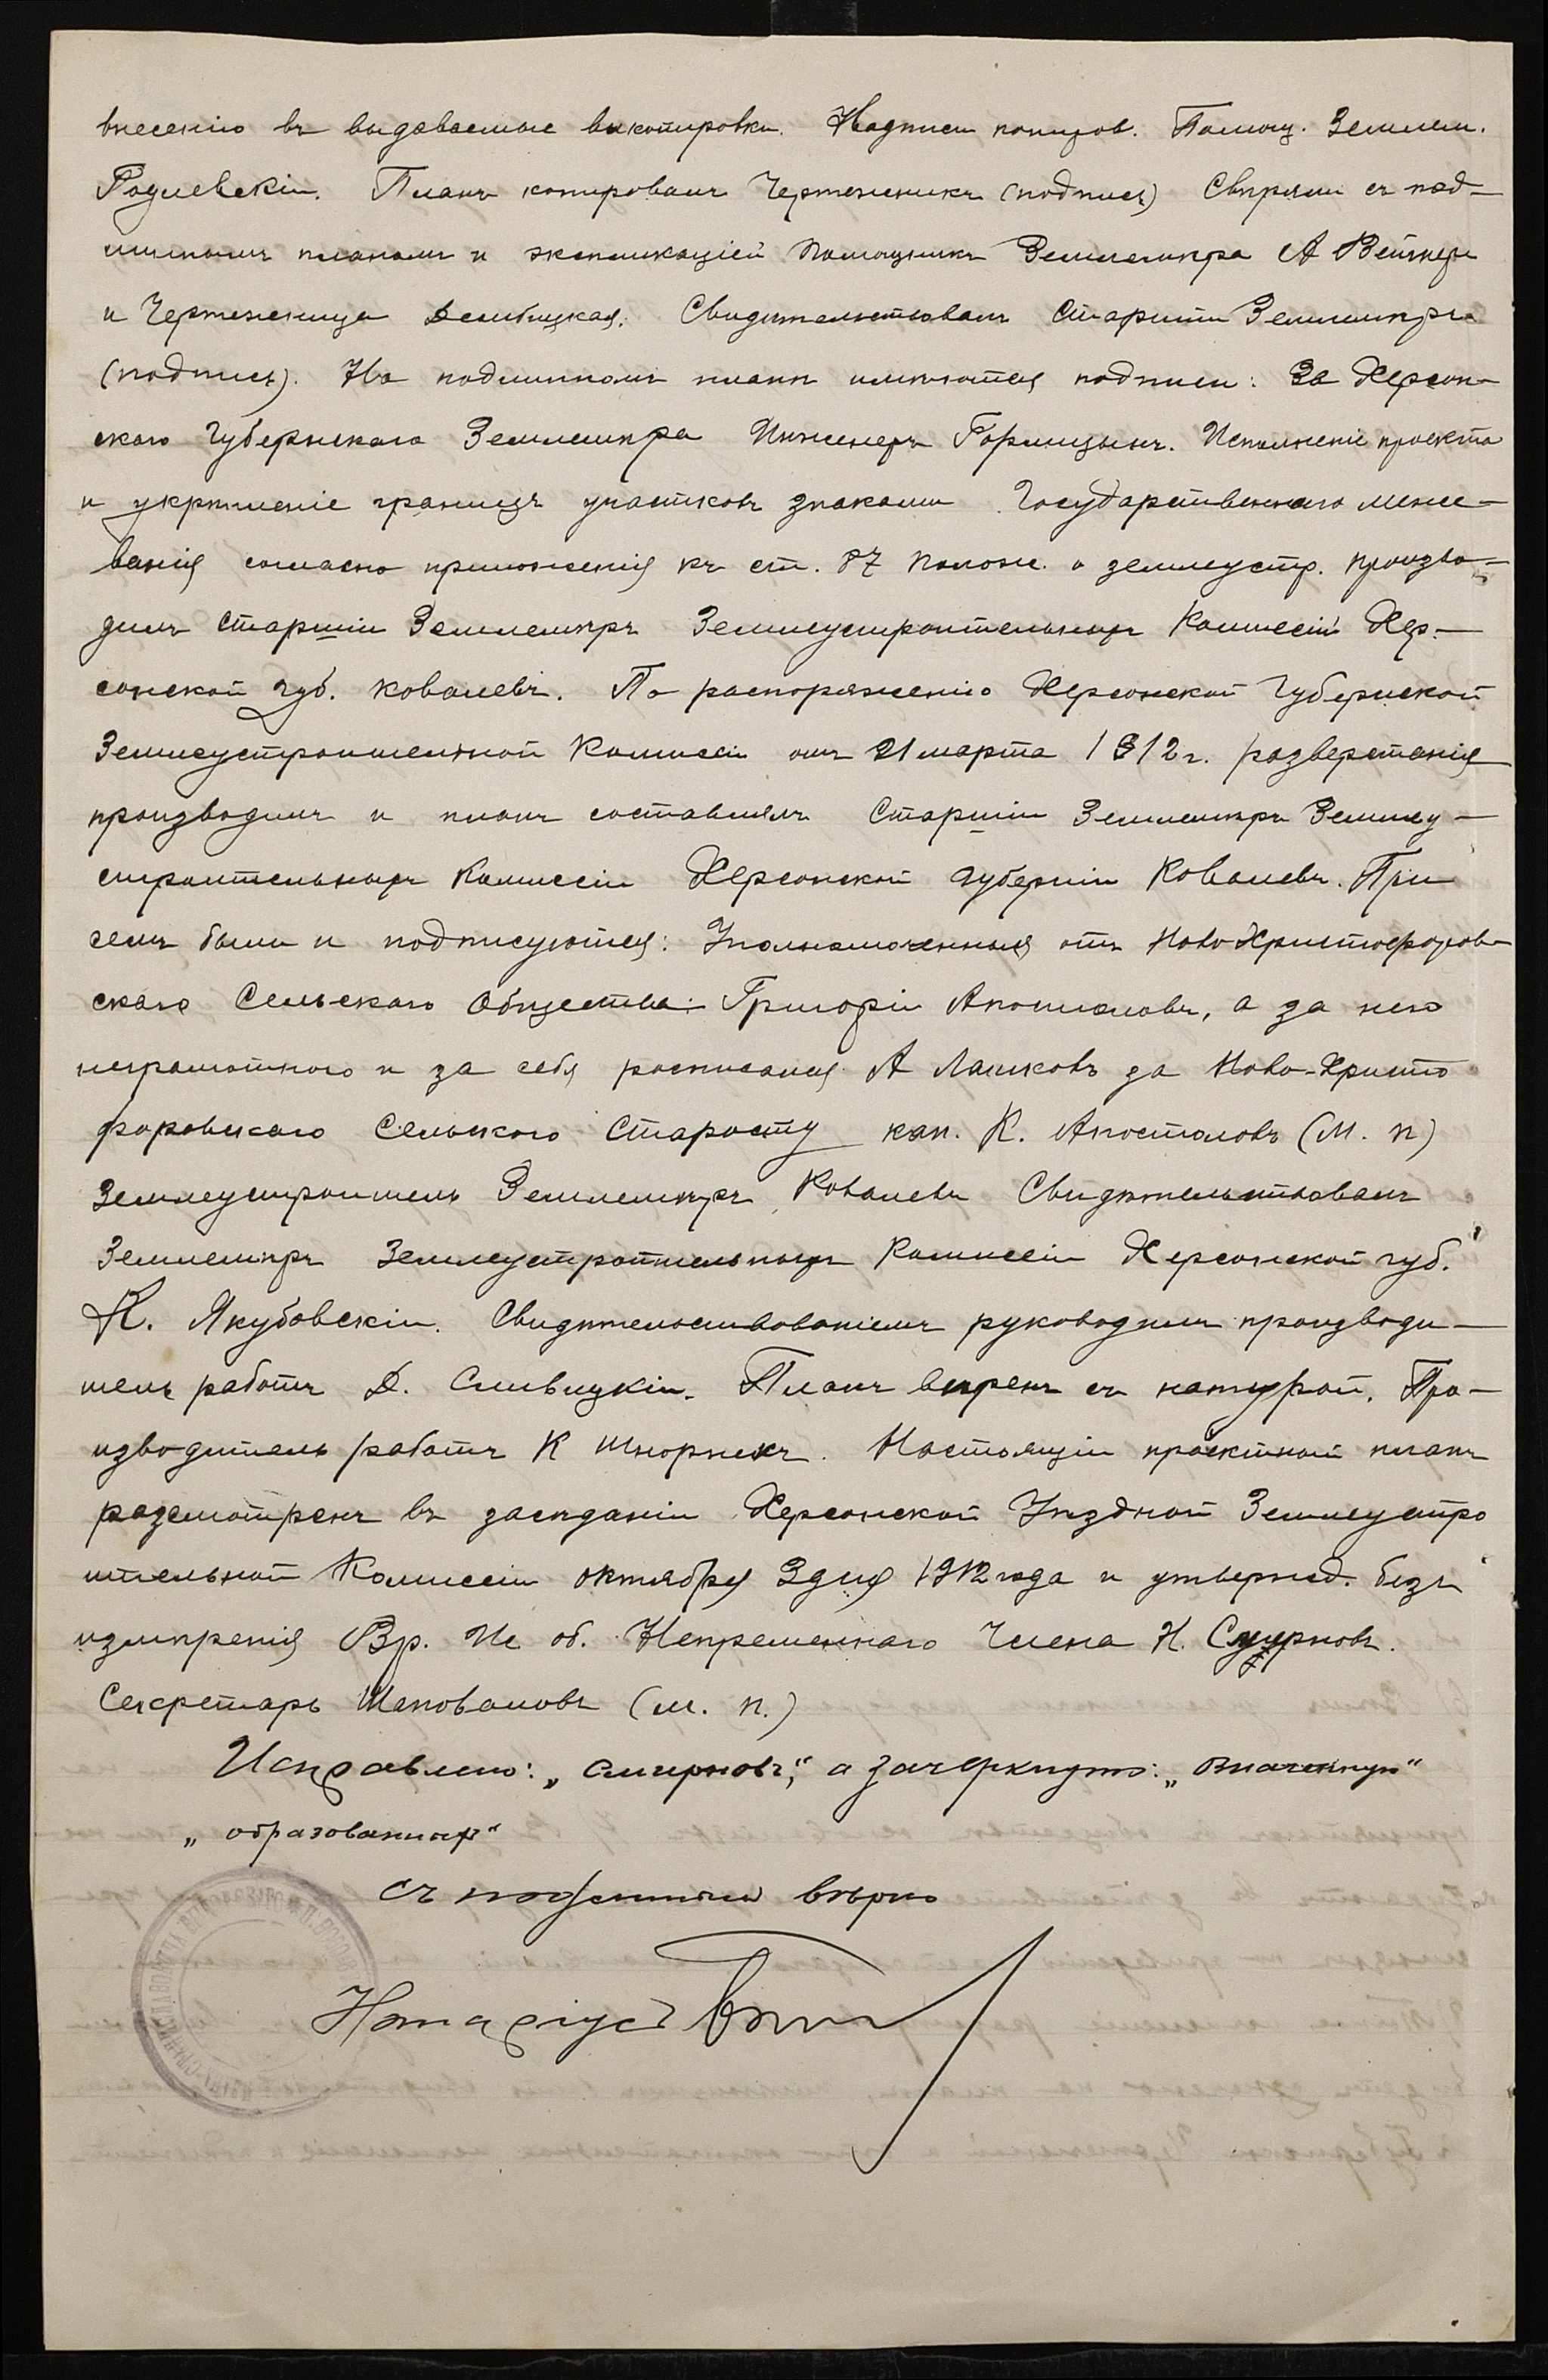 внесенію въ выдаваемые выкопировки. Надписи копиров. Помощ. Землем.
Родлевскій. Планъ копировалъ Чертежникъ (подпись) Свѣряли съ под-
линнымъ планомъ и экспликаціей Помощникъ Землемѣра А Вейтнеръ
и Чертежница Дембицкая. Свидѣтельствовалъ Старшій Землемѣръ
(подпись). На подлинномъ планѣ имѣются подписи: За Херсон-
скаго Губернскаго Землемѣра Инженеръ Горлицынъ. Исполненіе проекта
и укрѣпленіе границъ участковъ знаками Государственнаго меже-
ванія согласно приложенія къ ст. 87 Полож. о землеустр. произво-
дилъ Старшій Землемѣръ Землеустроительныхъ Комиссій Хер-
сонской губ. Ковалевъ. По распоряженію Херсонской Губернской
Землеустроительной Комиссіи отъ 21 марта 1912 г. разверстанія
производилъ и планъ составлялъ Старшій Землемѣръ Землеу-
строительныхъ Комиссій Херсонской губерніи Ковалевъ. При
семъ были и подписуются: Уполномоченныя отъ Ново-Христофоров-
скаго Сельскаго Общества: Григорій Апостоловъ, а за него
неграмотнаго и за себя росписался А Лашковъ за Ново-Христо
форовскаго Сельскаго Старосту кан. К. Апостоловъ (М. п)
Землеустроитель Землемѣръ Ковалевъ Свидѣтельствовалъ
Землемѣръ Землеустроительныхъ Комиссій Херсонской губ.
К. Якубовскій. Свидѣтельствованіемъ руководилъ производи-
тель работъ Д. Сливицкій. Планъ вѣренъ съ натурой. Про-
изводитель работъ К Шнорнекъ. Настоящій проектный планъ
разсмотренъ въ засѣданіи Херсонской Уѣздной Землеустро
ительной Комиссіи октября 3 дня 1912 года и утвержд. безъ
измѣренія Вр. Ис об. Непременнаго Члена Н. Смирновъ.
Секретарь Шаповаловъ (м. п.)
Исправлено: „Смирновъ", а зачеркнуто: „Вначенную"
„образованныхъ"
Съ подлиннымъ вѣрно
Нотаріусъ